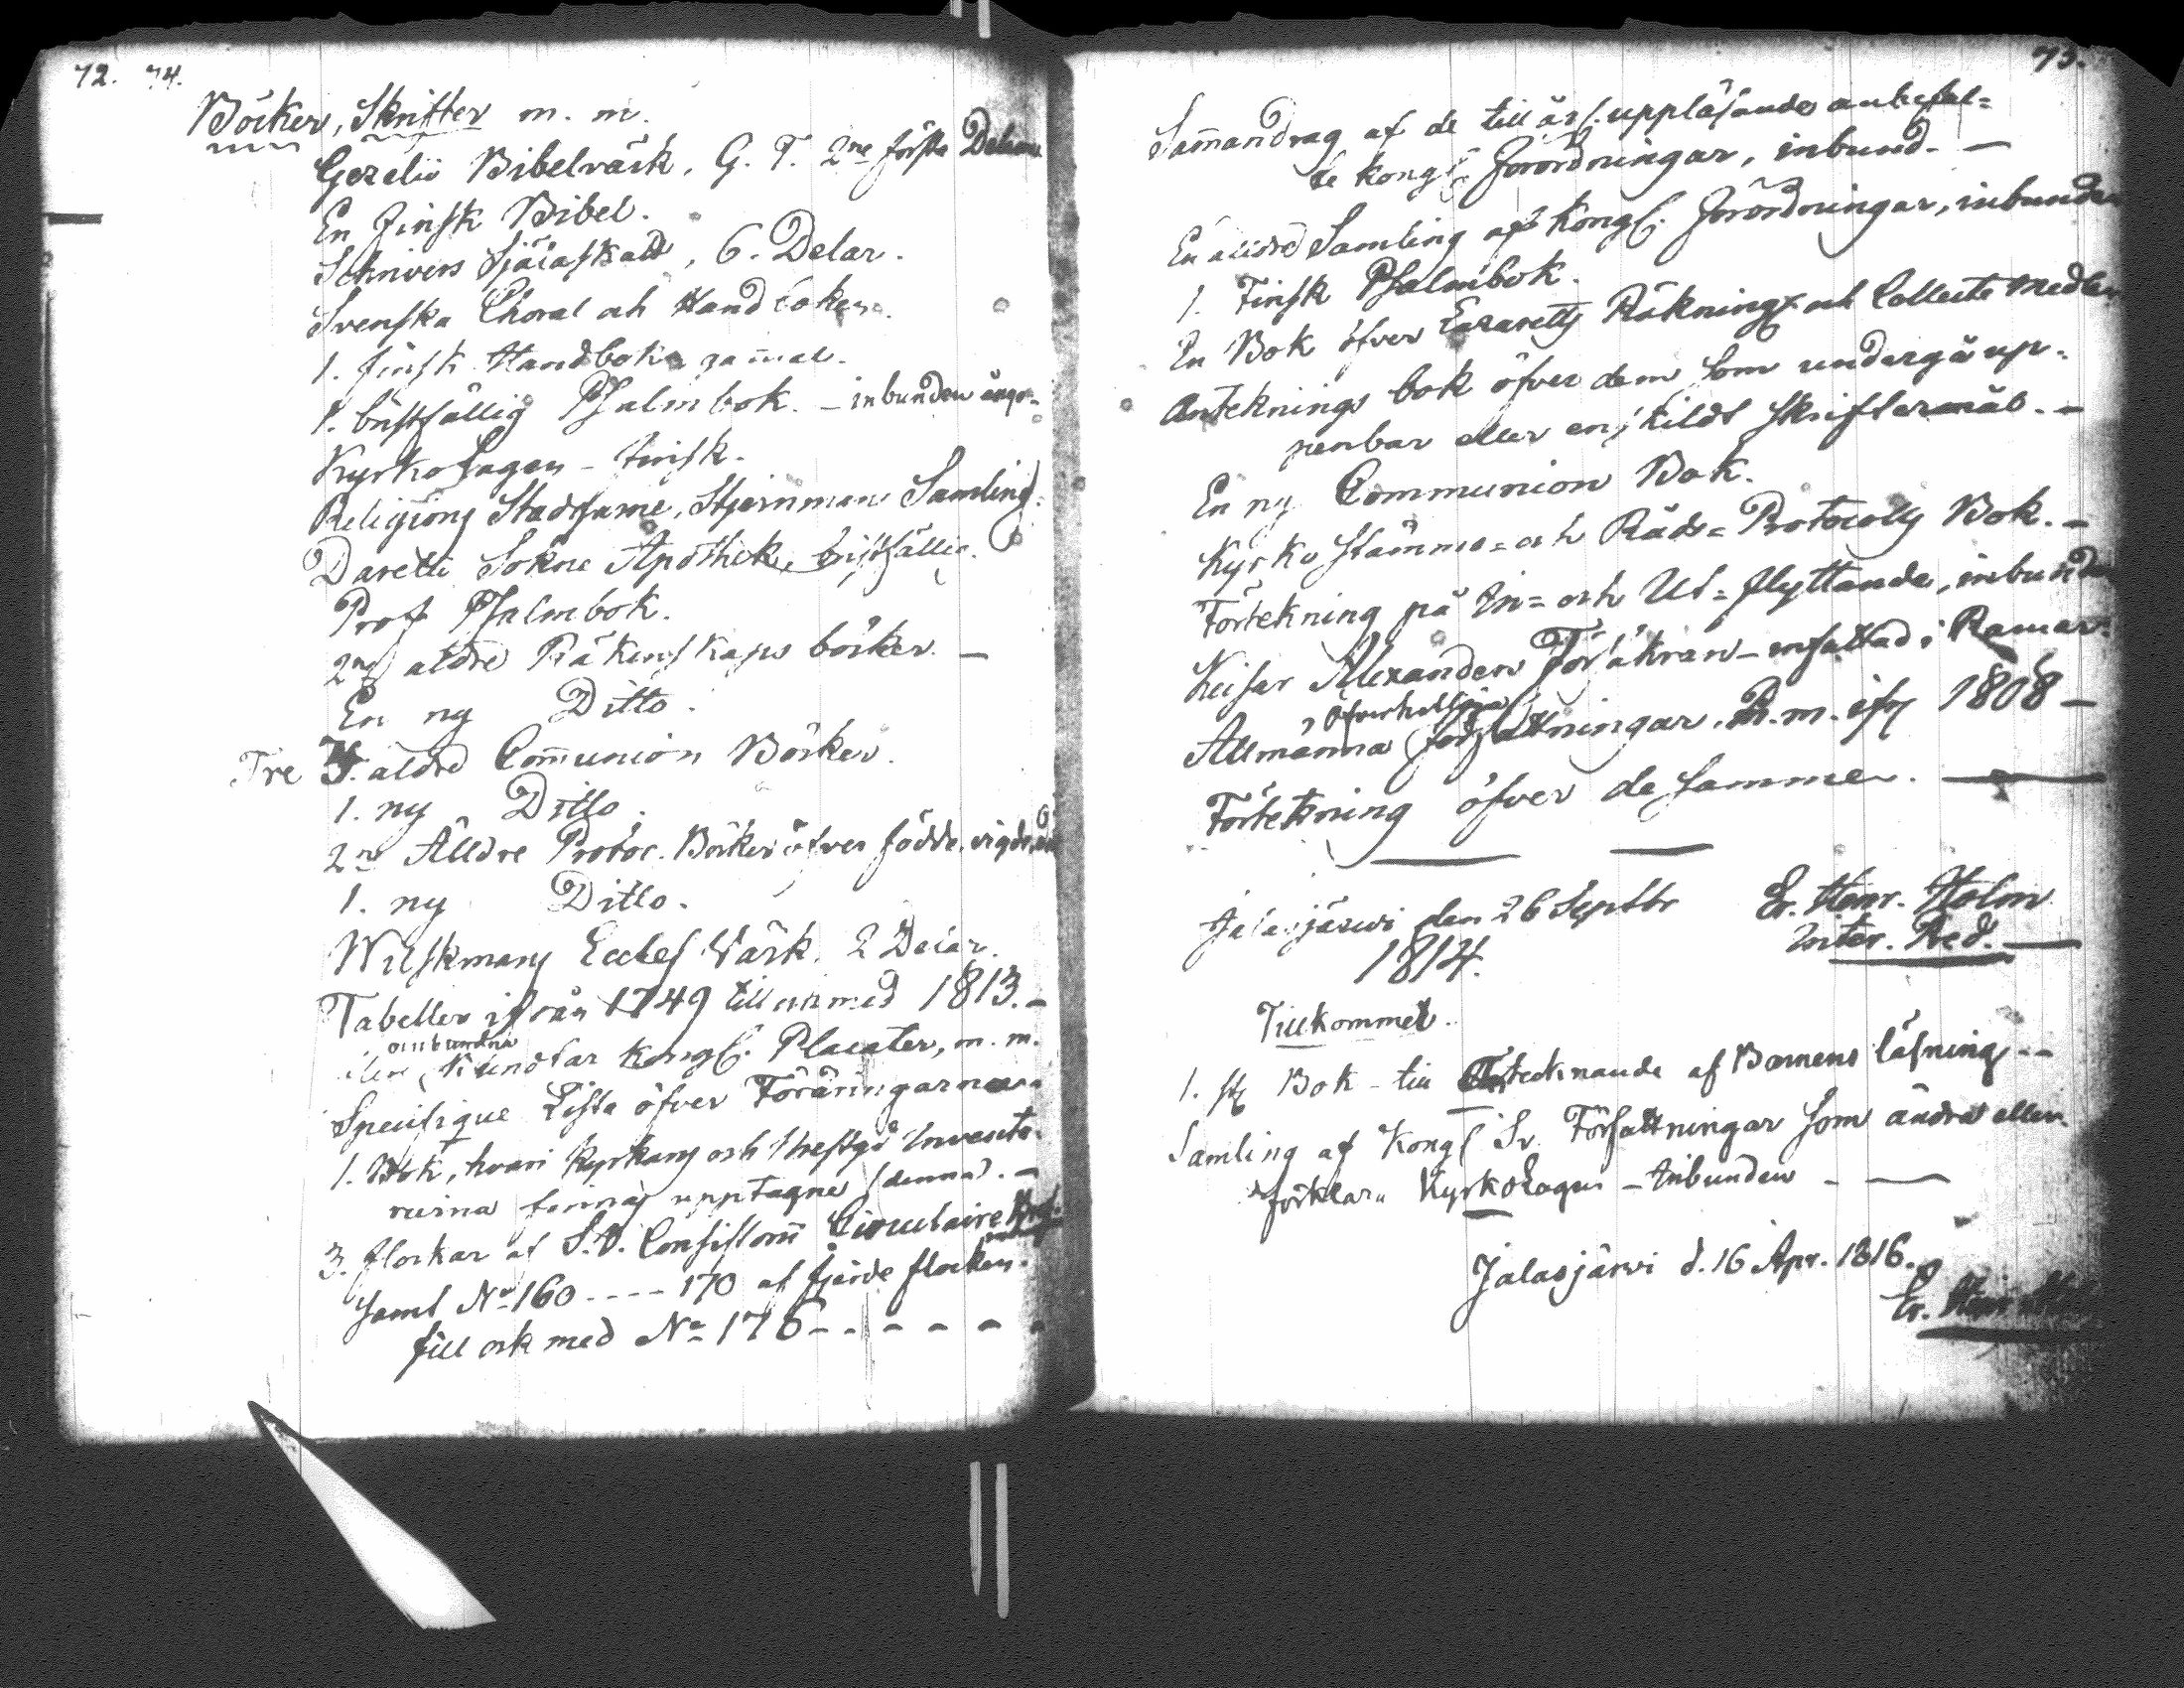 72. 74.
Böcker, Skrifter m. m.
Gezelii Bibelvärk, G. T. 2ne första Delarne
En finsk Bibel.
Schrivers Själaskatt, 6. Delar.
Svenska Choral och Handboken.
1. finsk Handbok gammal.
1. bristfällig Psalmbok. – inbunden
Kyrkolagen – finsk.
Religions Stadgarne, Stjernmans Samling.
Darelli Sokne Apothek, bristfällig.
Prof Psalmbok.
2ne äldre Räkenskaps böcker. –
En ny Ditto.
Tre äldre Communion Böcker.
1. ny Ditto.
2ne Älldre Protoc. Böcker öfver födde, vigde
1. ny Ditto.
Wilskmans Eccles. Värk. 2 Delar.
Tabeller ifrån 1749 till och med 1813. –
oinbundna
luntor Kongl. Placater, m. m.
Specifique Lista öfver Föräringarne
1. Bok, hvari Kyrkans och Prestgås Invento-
rierna finnas upptagne (denna). –
3. flockar af S. V. Consistorii Circulaire Bref
samt No 160 - - - - 170 af fjerde flocken.
till och med No 176 - - - - - -
73.
Sam̄andrag af de till årl. uppläsande anbefal=
te kongl. Förordningar, inbund. –
En älldre Samling af Kongl. Förordningar, inbunden
1. Finsk Psalmbok.
En Bok öfver Lazaretts Räkning och Collecte medlen
Antecknings bok öfver dem som undergå up-
penbar eller enskildt skriftermål. –
En ny Communion Bok.
Kyrko stämmo= och Råds= Protocolls Bok. –
Förtekning på In= och Ut= flyttande, inbunden
Keisar Alexanders Försäkran – infattad i Ramar.
Allmänna författningar. m. m. ifr. 1808 –
Förtekning öfver de samme.
Jalasjärvi den 26 Septbr
1814.
Er. Henr. Holm
Inter. Pred.
Tillkommet.
1. st. Bok – till Antecknande af Barnens läsning. --
Samling af Kongl. Sv. Författningar som ändra eller
förklara KyrkoLagen – Inbunden –
Jalasjärvi d. 16 Apr. 1816.
Er. Henr.